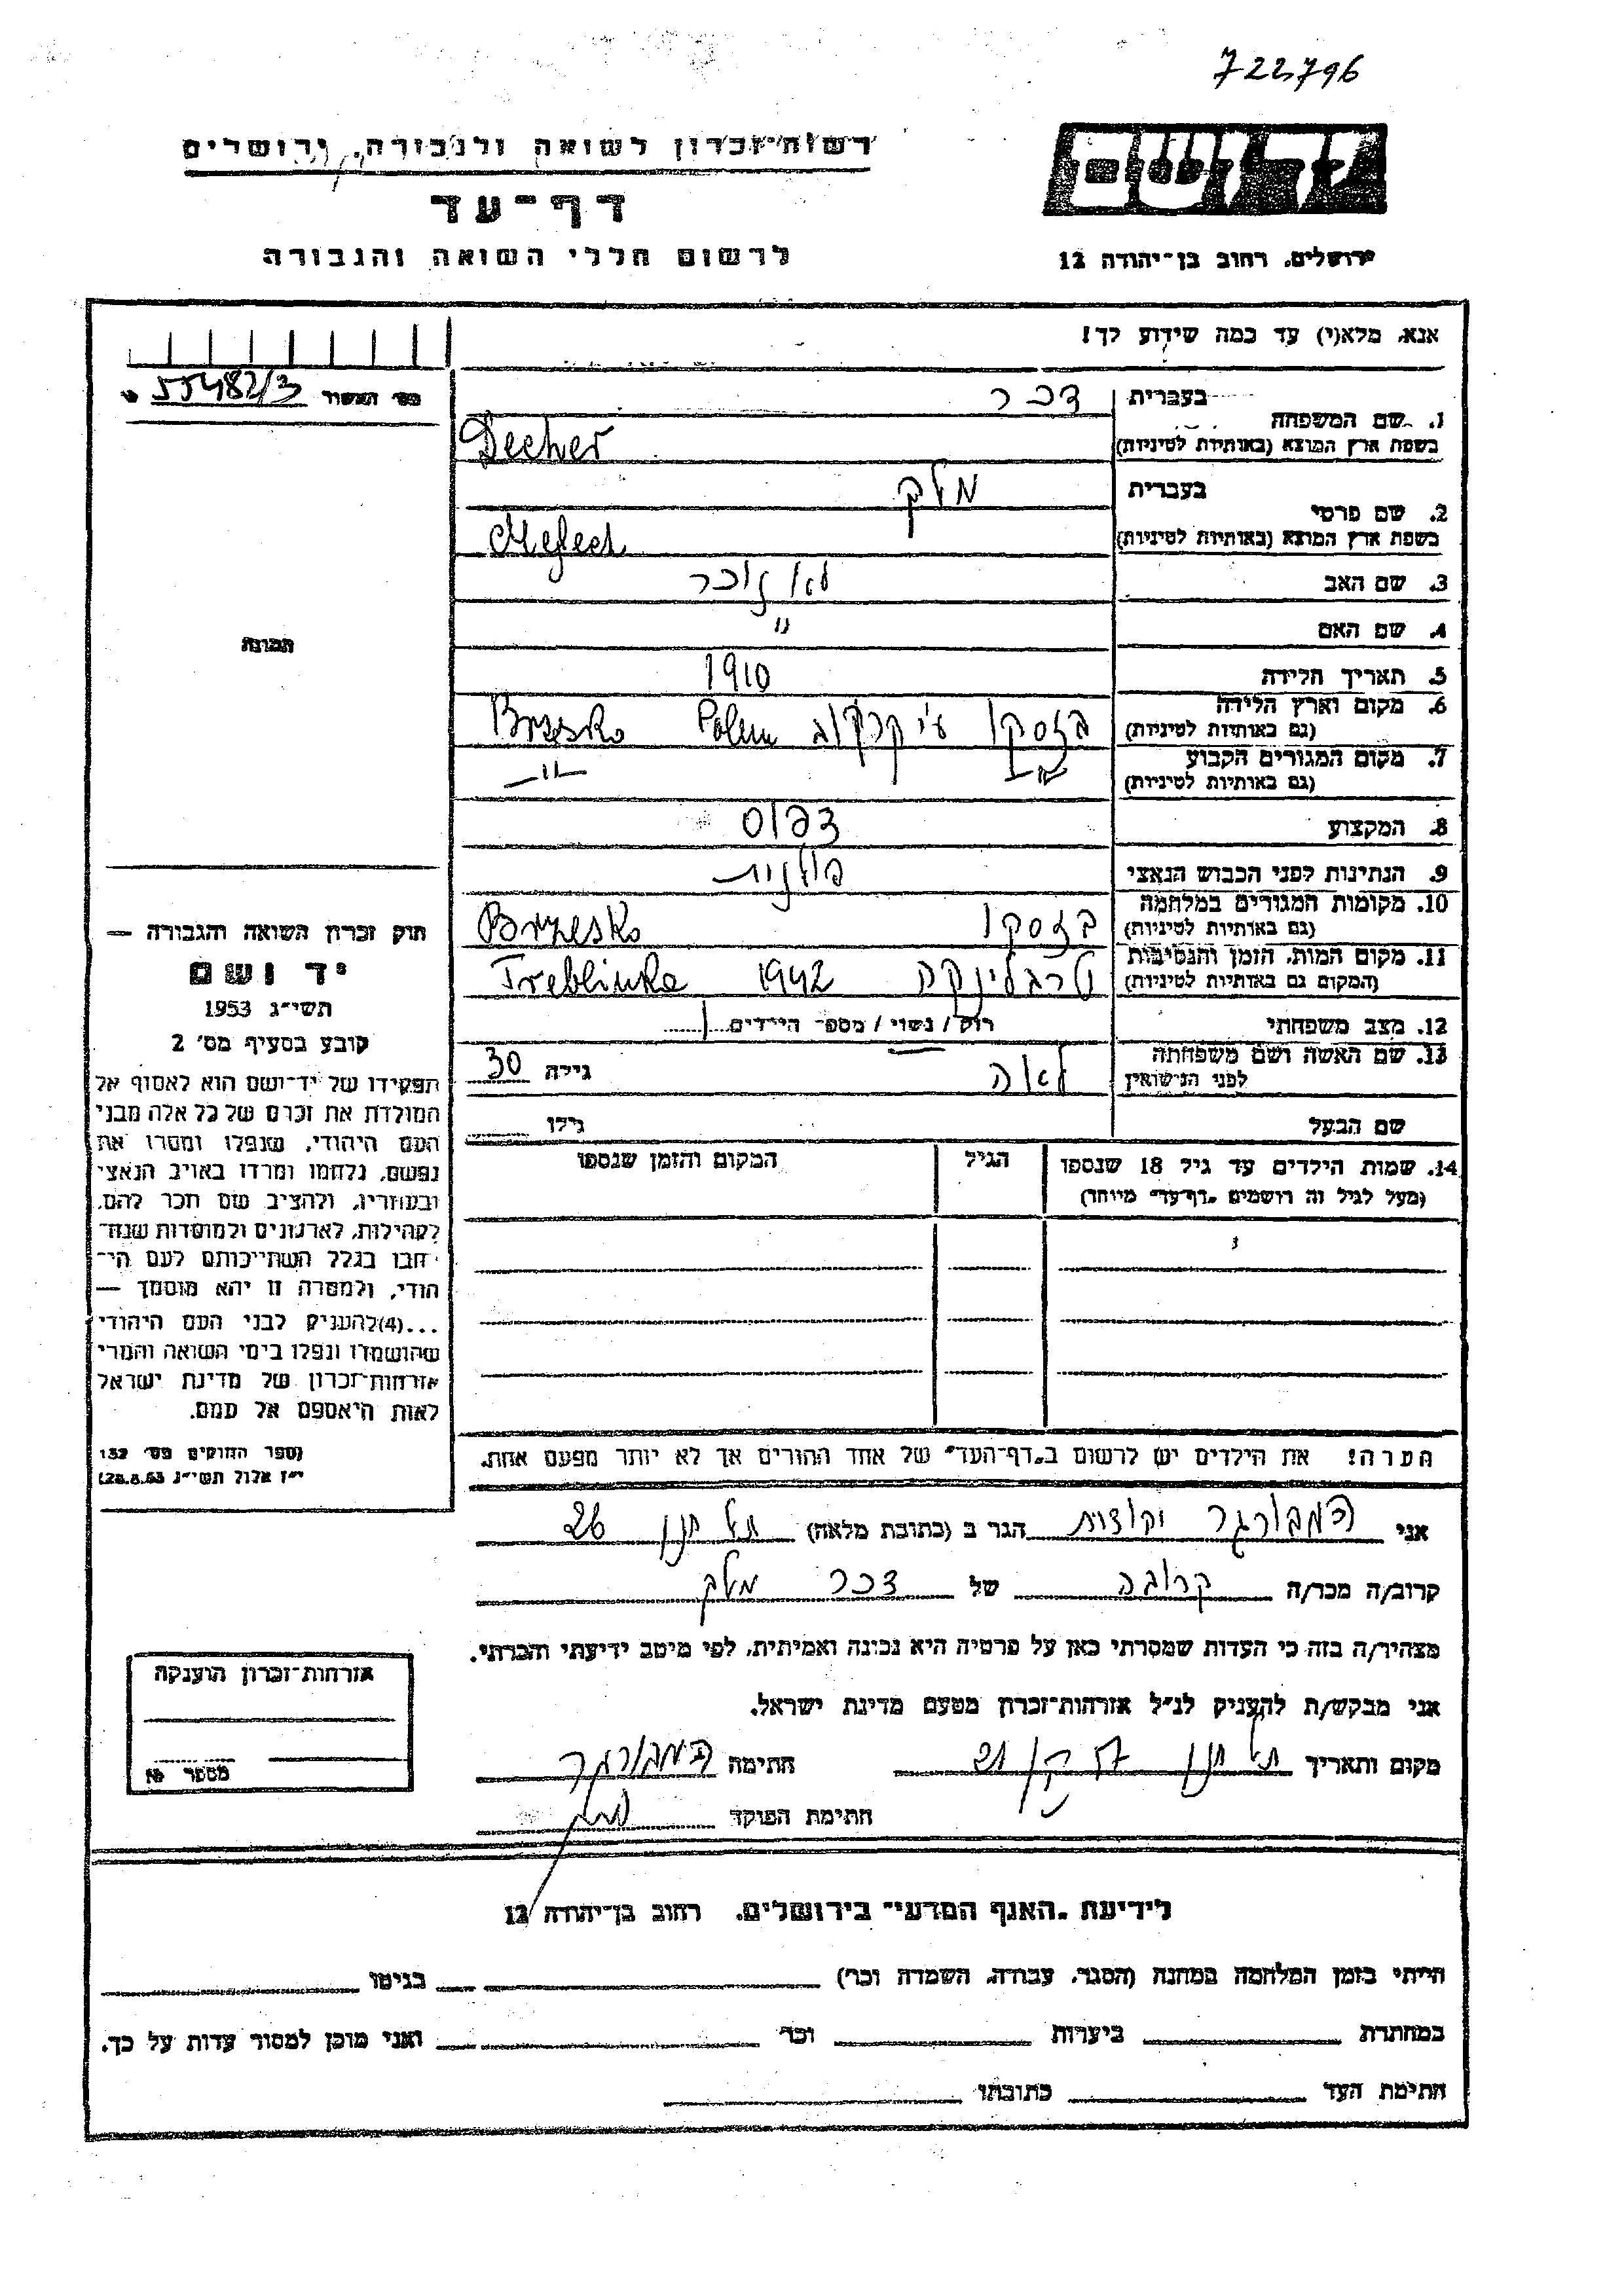 722796
רשות־זכרון לשואה ולגבורה, ירושלים
דף־עד
לרשום חללי השואה והגבורה
יד ושם
ירושלים, רחוב בן־יהודה 12
אנא, מלא(י) עד כמה שידוע לך!
מס׳ האשור 55482/3
1. שם המשפחה
בעברית דכר
בשפת ארץ המוצא (באותיות לטיניות) Decher
2. שם פרטי
בעברית מלך
בשפת ארץ המוצא (באותיות לטיניות)
3. שם האב לא זוכר
4. שם האם "
5. תאריך הלידה 1910
6. מקום וארץ הלידה
(גם באותיות לטיניות) בזסקו ע״י קרקוב Polen Brzesko
7. מקום המגורים הקבוע
(גם באותיות לטיניות) -"- -"-
8. המקצוע דפוס
9. הנתינות לפני הכבוש הנאצי פולנית
10. מקומות המגורים במלחמה
(גם באותיות לטיניות) בזסקו Brzesko
11. מקום המות, הזמן והנסיבות
(המקום גם באותיות לטיניות) טרבלינקה 1942 Treblinka
12. מצב משפחתי רוק / נשוי / מספר הילדים 1
13. שם האשה ושם משפחתה
לפני הנישואין לאה גילה 30
שם הבעל גילו
14. שמות הילדים עד גיל 18 שנספו הגיל המקום והזמן שנספו
(מעל לגיל זה רושמים „דף־עד״ מיוחד)
הערה! את הילדים יש לרשום ב„דף־העד״ של אחד ההורים אך לא יותר מפעם אחת.
תמונה
חוק זכרון השואה והגבורה —
יד ושם
תשי״ג 1953
קובע בסעיף מס׳ 2
תפקידו של יד־ושם הוא לאסוף אל
המולדת את זכרם של כל אלה מבני
העם היהודי, שנפלו ומסרו את
נפשם, נלחמו ומרדו באויב הנאצי
ובעוזריו, ולהציב שם וזכר להם,
לקהילות, לארגונים ולמוסדות שנח־
רבו בגלל השתייכותם לעם הי־
הודי, ולמטרה זו יהא מוסמך —
...(4) להעניק לבני העם היהודי
שהושמדו ונפלו בימי השואה והמרי
אזרחות־זכרון של מדינת ישראל
לאות היאספם אל עמם.
(ספר החוקים מס׳ 132
י״ז אלול תשי״ג 28.8.53)
אני המבורגר יהודית הגר ב (כתובת מלאה) תל חנן 26
קרוב/ה מכר/ה קרובה של דכר מלך
מצהיר/ה בזה כי העדות שמסרתי כאן על פרטיה היא נכונה ואמיתית, לפי מיטב ידיעתי והכרתי.
אני מבקש/ת להעניק לנ״ל אזרחות־זכרון מטעם מדינת ישראל.
מקום ותאריך תל חנן חתימה המבורגר
חתימת הפוקד
אזרחות־זכרון הוענקה
מספר №
לידיעת „האגף המדעי״ בירושלים, רחוב בן־יהודה 12
הייתי בזמן המלחמה במחנה (הסגר, עבודה, השמדה וכו׳) בגיטו
במחתרת ביערות וכו׳ ואני מוכן למסור עדות על כך.
חתימת העד כתובתו